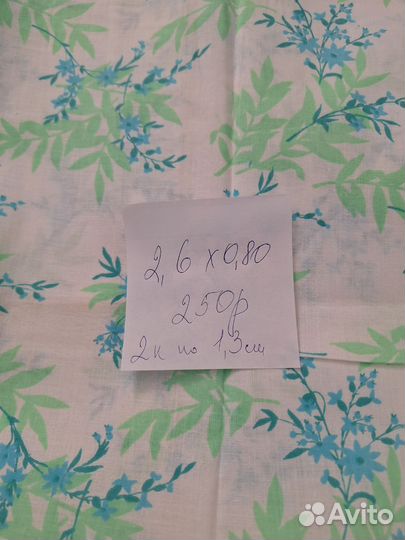 2,6 х 0,80
250р
2к по 1,3см
Avito